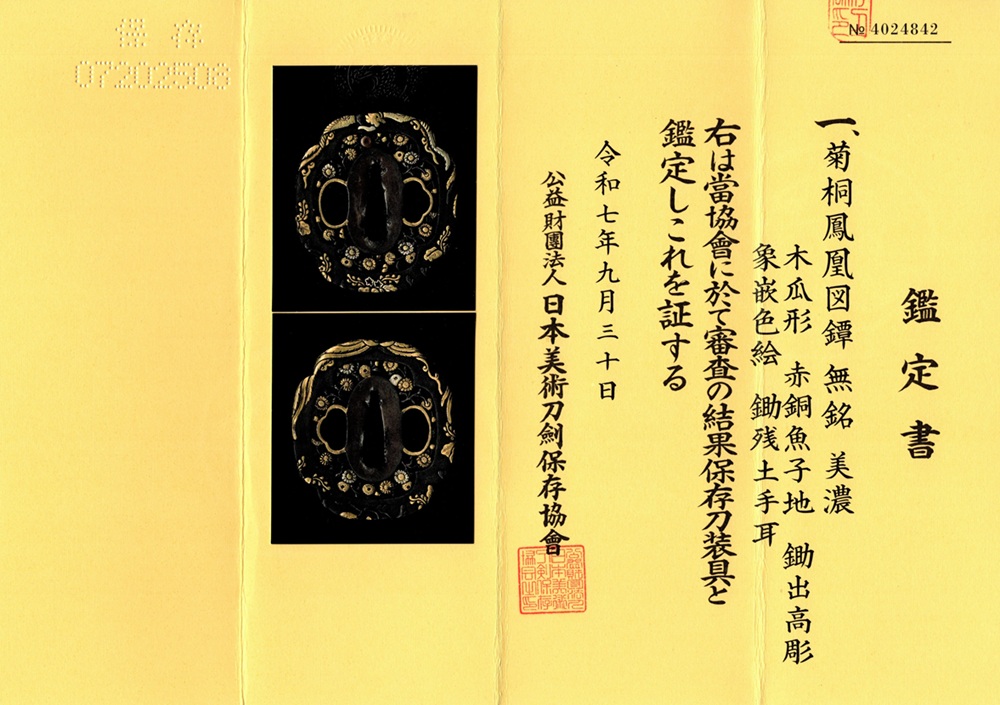 № 4024842
鑑定書
一、菊桐鳳凰図鐔 無銘 美濃
木瓜形 赤銅魚子地 鋤出高彫
象嵌色絵 鋤残土手耳
右は當協會に於て審査の結果保存刀装具と
鑑定しこれを証する
令和七年九月三十日
公益財團法人 日本美術刀劍保存協會
保存